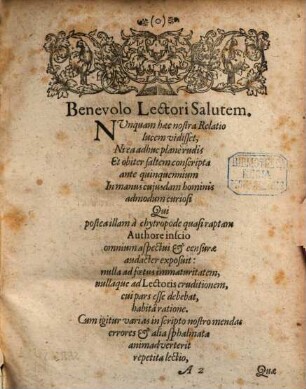 (o)
Benevolo Lectori Salutem.
NUnquam hæc nostra Relatio
lucem vidisset,
Ni ea adhuc planè rudis
Et obiter saltem conscripta
ante quinquennium
In manus cujusdam hominis
admodum curiosi
Qui
postea illam à chytropode quasi raptam
Authore inscio
omnium aspectui & censuræ
audacter exposuit:
nulla ad fœtus immaturitatem,
nullaque ad Lectoris eruditionem,
cui pars esse debebat,
habitâ ratione.
Cum igitur varias in scripto nostro mendas
errores & alia sphalmata
animadverterit
repetita lectio,
A 2 Quæ